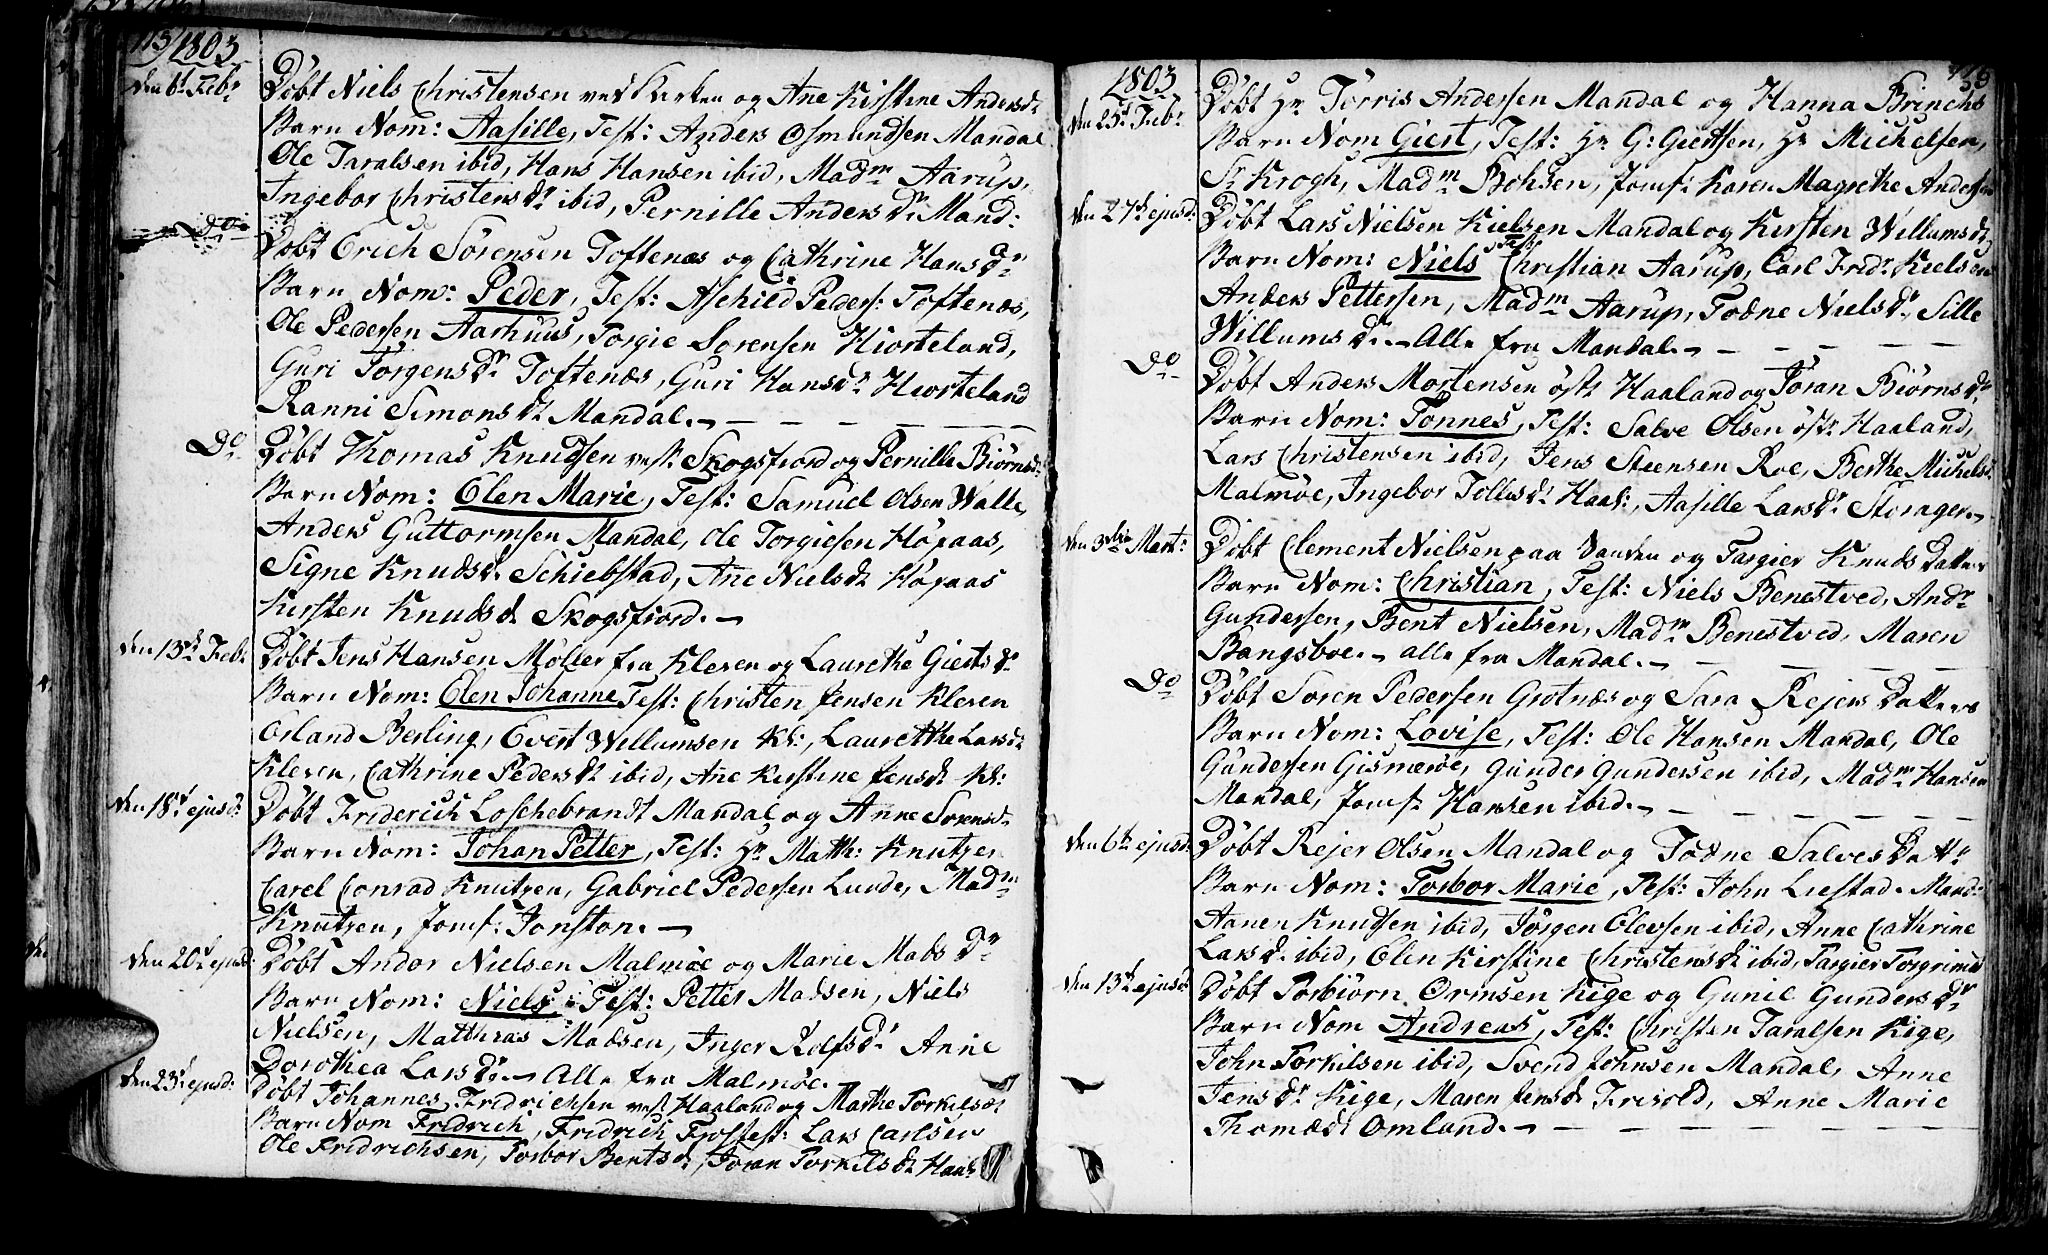 115 1803
den 6t Febr Döbt Niels Christensen ved Kirken og Ane Kirstine Andersdr
Barn Nom: Aasille, Test: Anders Osmundsen Mandal
Ole Taralsen ibid, Hans Hansen ibid, Madm Aarup,
Ingebor Christensdr ibid, Pernille Andersdr Mand:
do Döbt Erich Sörensen Toftenæs og Cathrine Hansdr
Barn Nom: Peder, Test: Aschild Peders: Toftenæs,
Ole Pedersen Aarhuus, Torgie Sorensen Hiorteland,
Guri Torgensdr Toftenæs, Guri Hansdr Hiorteland
Ranni Simonsdr Mandal.
Do Döbt Thomas Knudsen vest Skogsfiord og Pernille Biörnsdr
Barn Nom: Elen Marie, Test: Samuel Olsen Walle,
Anders Guttormsen Mandal, Ole Torgiesen Höfaas,
Signe Knudsdr Schiebstad, Ane Nielsdr Höfaas
Kirsten Knudsdr Skogsfiord.
den 13de Feb: Döbt Jens Hansen Möller fra Kleven og Laurethe Giertsdr
Barn Nom: Elen Johanne Test: Christen Jensen Kleven
Erland Berling, Evert Willumsen Kl:, Laurethe Larsdr
Kleven, Cathrine Pedersdr ibid, Ane Kirstine Jensdr Kl:
den 18de ejusd: Döbt Friderich Loschebrandt Mandal og Anne Sorensdr
Barn Nom: Johan Petter, Test: Hr Matth: Knutzen
Carel Conrad Knutzen, Gabriel Pedersen Lunde, Madm
Knutzen, Jomf: Jonston.
den 20de ejusd: Döbt Andor Nielsen Malmöe og Marie Madsdr
Barn Nom: Niels. Test: Petter Madsen, Niels
Nielsen, Matthias Madsen, Inger Rolfsdr Anne
Dorothea Larsdr. Alle fra Malmöe.
den 23de ejusd: Döbt Johannes Fridrichsen vest Haaland og Marthe Torkilsdr
Barn Nom Fridrich, Fridrich Test: Lars Carlsen
Ole Fridrichsen, Torbor Bentsdr, Joran Torkilsdr Haal:
1803
den 25de Febr Döbt Hr Törris Andersen Mandal og Hanna Brinchs
Barn Nom Giert, Test: Hr G: Giertsen, Hr Michelsen,
Sr Krogh, Madm Bohsen, Jomf: Karen Magrethe Andersen
den 27de ejusd: Döbt Lars Nielsen Kielsen Mandal og Kirsten Willumsdr
Barn Nom: Niels Test: Christian Aarup, Carl Fridr Kielsen
Anders Pettersen, Madm Aarup, Todne Nielsdr, Sille
Willumsdr. Alle fra Mandal.
Do Döbt Anders Mortensen östr Haaland og Joran Biörnsdr
Barn Nom: Tönnes, Test: Salve Olsen östr Haaland,
Lars Christensen ibid, Jens Steensen Roe, Berthe Michelsdr
Malmöe, Ingebor Tollefsdr Haal:, Aasille Larsdr Storager.
den 3die Mart: Döbt Clement Nielsen paa Sanden og Targier Knuds Datter
Barn Nom: Christian, Test: Niels Benestved, Andr
Gundersen, Bent Nielsen, Madm Benestved, Maren
Bangsboe. alle fra Mandal.
Do Döbt Soren Pedersen Grotnæs og Sara Rejers Datter
Barn Nom: Lovise, Test: Ole Hansen Mandal, Ole
Gundersen Gismeröe, Gunder Gundersen ibid, Madm Hansen
Mandal, Jomf: Hansen ibid.
den 6te ejusd: Döbt Rejer Olsen Mandal og Todne Salves Dattr
Barn Nom: Torbor Marie, Test: John Liestad Mand:
Aanen Knudsen ibid, Jörgen Olevsen ibid, Anne Cathrine
Larsdr ibid, Elen Kirstine Christensdr ibid, Targier Torgrimsdr
den 13de ejusd: Döbt Torbiörn Ormsen Kige og Gunil Gundersdr
Barn Nom Andreas, Test: Christen Taralsen Kige,
John Torkilsen ibid, Svend Johnsen Mandal, Anne
Jensdr Kige, Maren Jensdr Frivold, Anne Marie
Thomædr Omland.